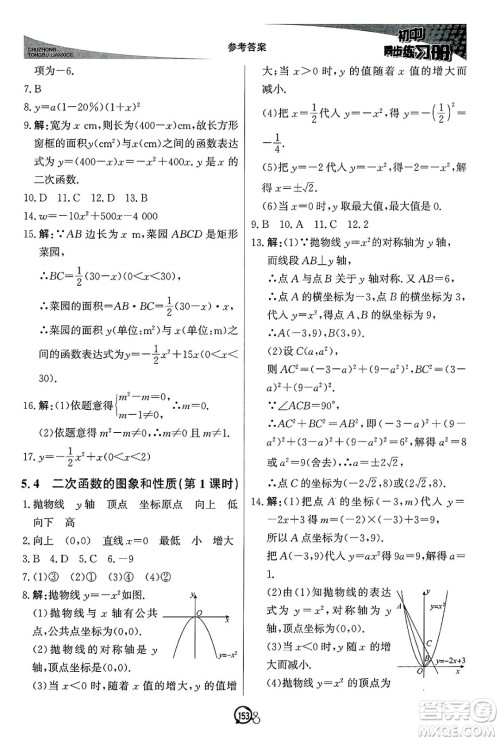 CHUZHONG
TONGBU LIANXICE
参考答案
初中
同步练习册
项为-6.
7. B
8. y=a(1-20%)(1-x)²
9. 解:宽为 x cm,则长为(400-x)cm,故长方形
窗框的面积 y(cm²)与 x(cm)之间的函数表达
式为 y=x(400-x)=-x²+400x. y 是 x 的
二次函数.
10. D 11. C 12. D 13. B
14. w=-10x²+500x-4 000
15. 解:∵AB 边长为 x m,菜园 ABCD 是矩形
菜园,
∴BC=1/2(30-x)(0<x<30).
∵菜园的面积=AB·BC=1/2(30-x)·x,
∴菜园的面积 y(单位:m²)与 x(单位:m)之
间的函数表达式为 y=-1/2x²+15x(0<x<
30).
16. 解:(1)依题意得{m²-m=0, m-1≠0, ∴m=0.
(2)依题意得 m²-m≠0,∴m≠0 且 m≠1.
17. y=1/2x²
5.4 二次函数的图象和性质(第 1 课时)
1. 抛物线 y 轴 顶点 坐标原点 向上 低
向下 高
2. 向上 (0,0) 直线 x=0 减小 增大
3. B 4. D 5. C 6. -9
7. (1)③ (2)④ (3)① (4)②
8. 解:抛物线 y=-x²如图.
(1)抛物线与 x 轴有公共
点,公共点坐标为(0,0).
(2)抛物线的对称轴是 y
轴,顶点坐标为(0,0).
(3)当 x<0 时,y 随着 x 值的增大 y 值增
O
x
y=-x²
大;当 x>0 时,y 的值随着 x 值的增大而
减小.
(4)把 x=1/2代入 y=-x²,得 y=-(1/2)²=
-1/4.
(5)把 x=-1/2代入 y=-x²,得 x=±√2/2.
(6)当 x=0 时,y 取最大值,最大值为 0.
9. B 10. A 11. C 12. 2
13. 解:(1)∵抛物线 y=x²的对称轴为 y 轴,
而线段 AB⊥y 轴,
∴点 A 与点 B 关于 y 轴对称.
∴点 A 的横坐标为-3,点 B 的横坐标为 3.
∴A(-3,9),B(3,9).
(2)设 C(a,a²),
则 AC²=(-3-a)²+(9-a²)²,
BC²=(3-a)²+(9-a²)²,AB²=6²,
∵∠ACB=90°,∴AC²+BC²=AB².
∴(-3-a)²+(9-a²)²+(3-a)²+(9-a²)²=6².
∴a²=9(舍去)或 a²=8.∴a=±2√2.
∴点 C 的坐标为(-2√2,8)或(2√2,8).
14. 解:(1)把点 A(-3,m)代入
y=-2x+3,得 m=9.
所以点 A 的坐标为(-3,9).
将点 A(-3,9)代入
y=ax²,得 9a=9. 解得 a=1.
(2)由(1)知抛物线的表达
式为 y=x²,对称轴为 y
轴,顶点坐标为(0,0).
(3)当 x<0 时,y 随 x 的增
大而减小.
(4)抛物线 y=x²的顶点为
A
B
O
x
y
y=x²
y=-2x+3
153